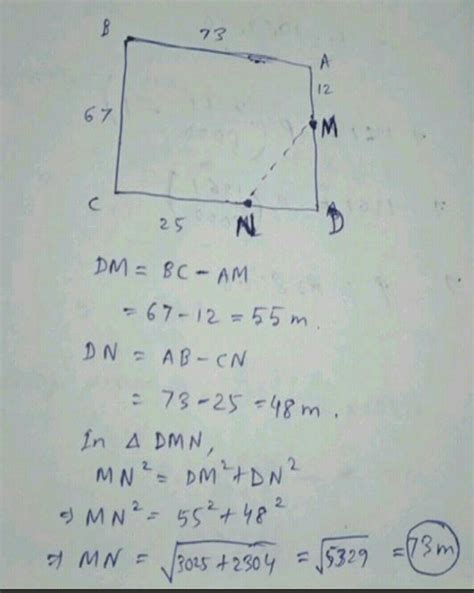 B 73 A
12
67 M
C 25 N D
DM = BC - AM
= 67 - 12 = 55 m.
DN = AB - CN
= 73 - 25 = 48 m.
In Δ DMN,
MN² = DM² + DN²
⇒ MN² = 55² + 48²
⇒ MN = √3025 + 2304 = √5329 = 73 m